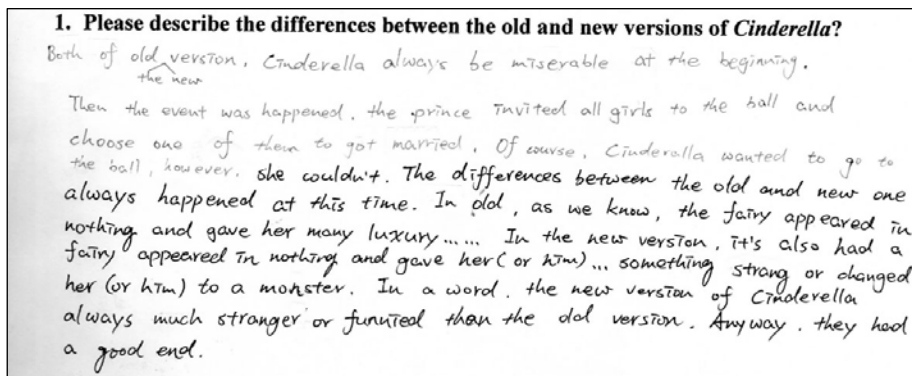 1. Please describe the differences between the old and new versions of Cinderella?
Both of old version, Cinderella always be miserable at the beginning.
the new
Then the event was happened, the prince invited all girls to the ball and
choose one of them to got married. Of course, Cinderella wanted to go to
the ball, however, she couldn't. The differences between the old and new one
always happened at this time. In old, as we know, the fairy appeared in
nothing and gave her many luxury...... In the new version, it's also had a
fairy appeared in nothing and gave her (or him)... something strang or changed
her (or him) to a monster. In a word, the new version of Cinderella
always much stranger or funnied than the old version. Anyway, they had
a good end.